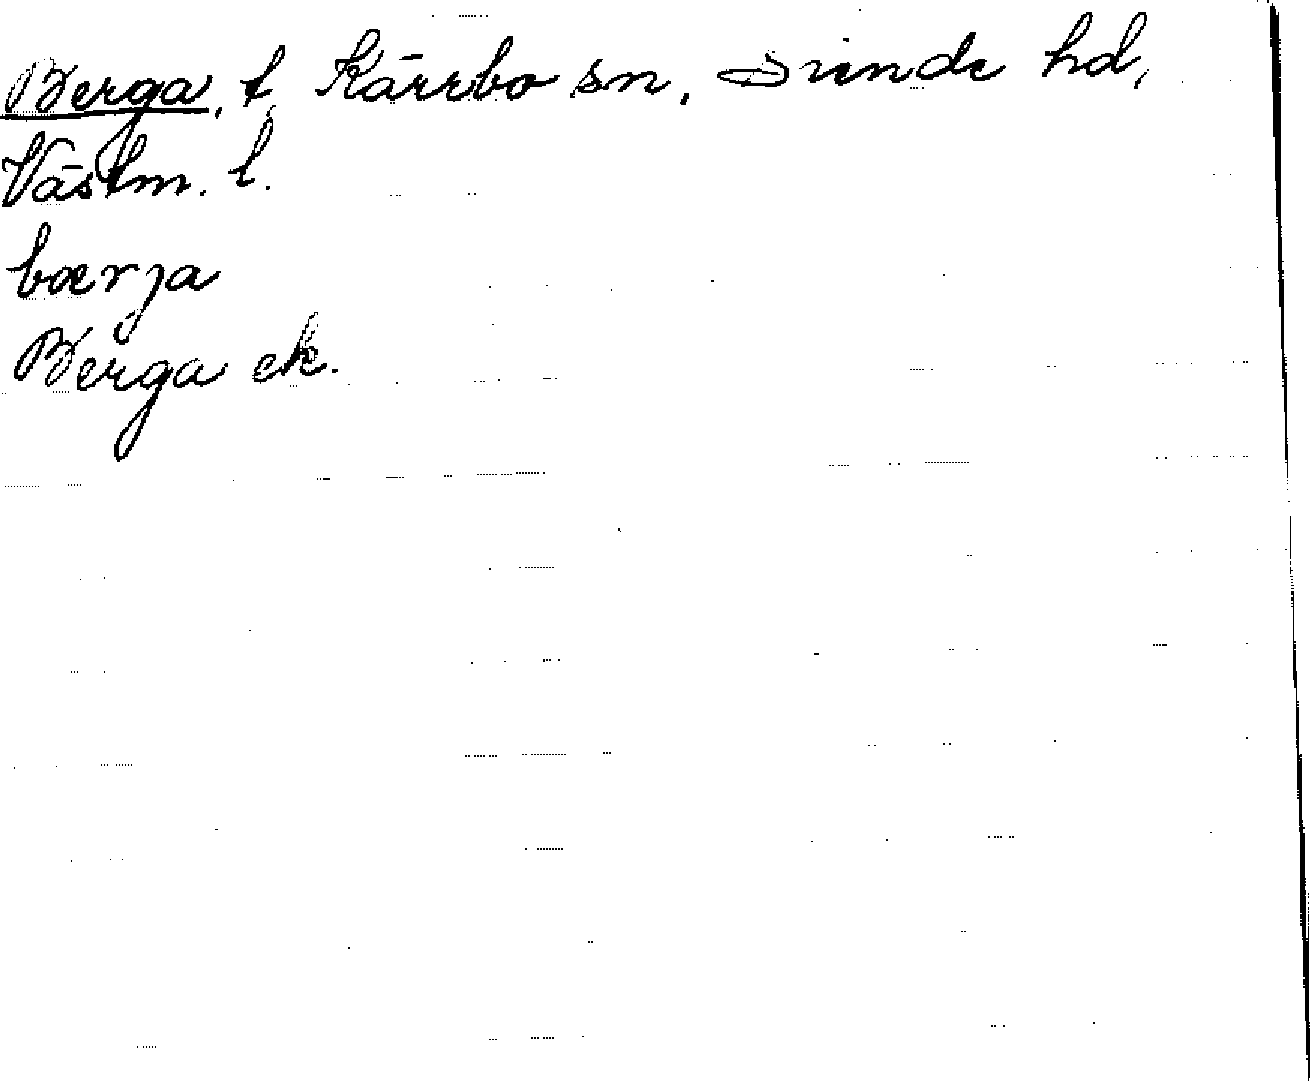 Berga, t, Kärrbo sn, Siende hd,
Västm. l.
bærja
Berga ek.